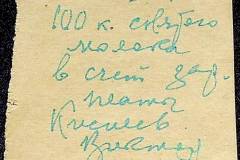 100 к. свежего
молока
в счет зар.
платы
Киселев
Виктор